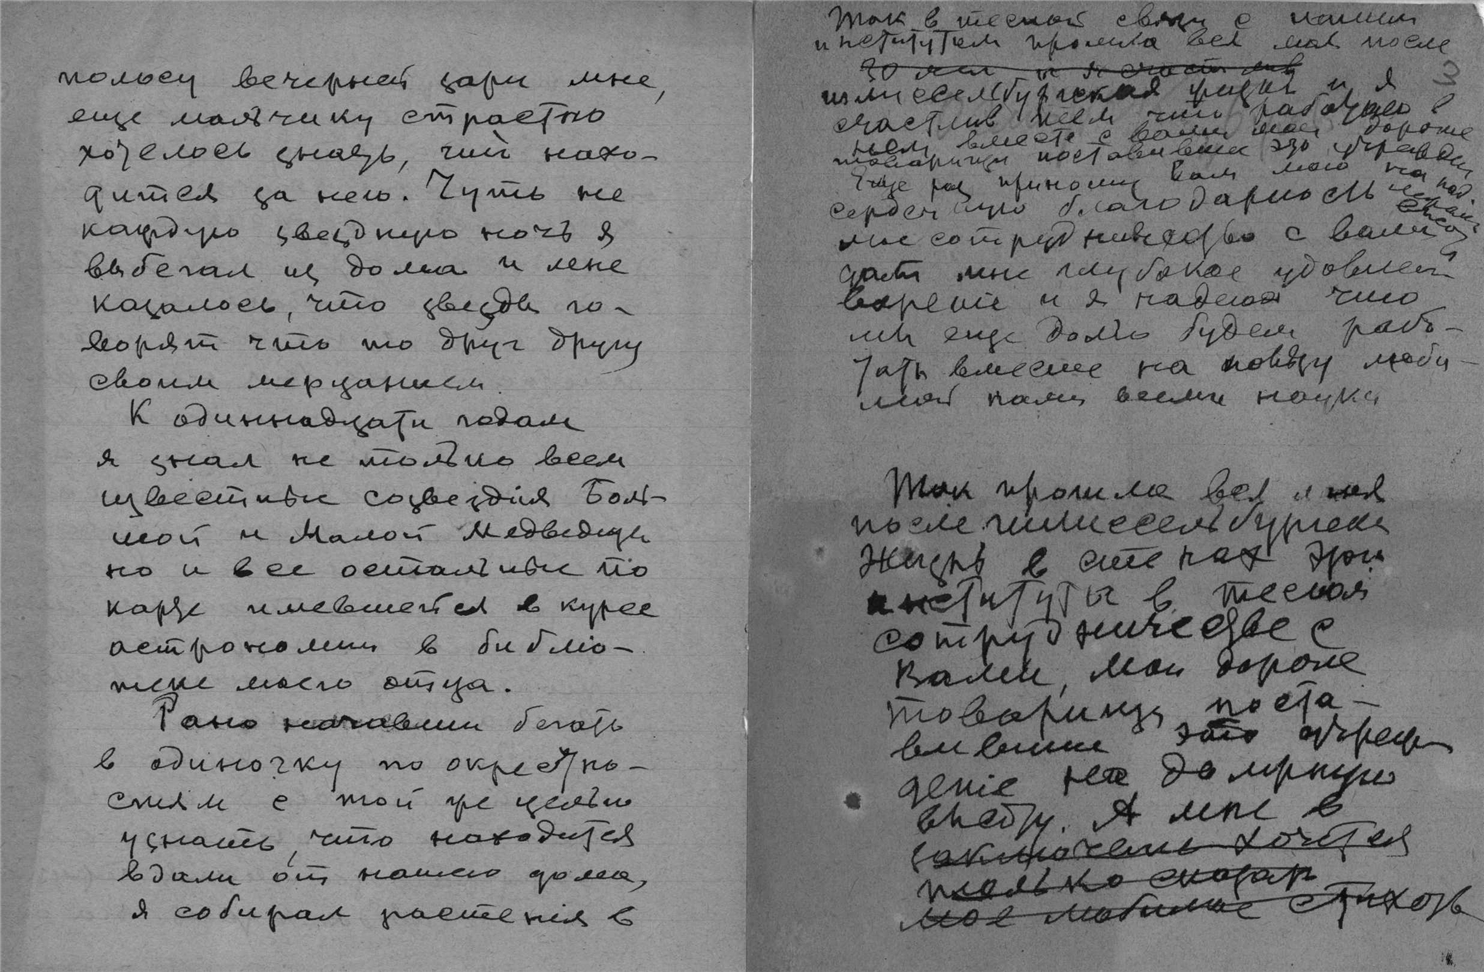 полосу вечерней зари мне,
еще мальчику страстно
хотелось знать, что нахо-
дится за нею. Чуть не
каждую звездную ночь я
выбегал из дома и мне
казалось, что звезды го-
ворят что то друг другу
своим мерцанием.
К одиннадцати годам
я знал не только всем
известные созвездiя Боль-
шой и Малой Медведицы
но и все остальные по
карте имевшейся в курсе
астрономии в библiо-
теке моего отца.
Рано начавши бегать
в одиночку по окрестно-
стям с той же целью
узнать, что находится
вдали от нашего дома,
я собирал растенiя в
Так в тесной связи с нашим
институтом прошла вся моя после
30 лет и я счастлив
шлиссельбургская жизнь и я
счастлив тем что работаю в
нем вместе с вами мои дорогие
товарищи поставившие это учрежден
Еще раз приношу Вам мою
сердечную благодарность
мое сотрудничество с вами
дает мне глубокое удовлет-
ворение и я надеюсь что
мы еще долго будем рабо-
тать вместе на пользу люби-
мой нами всеми науки
Так прошла вся моя
после шлиссельбургская
жизнь в стенах этого
института в тесном
сотрудничестве с
Вами, мои дорогие
товарищи, поста-
вившие это учреж
денiе на должную
высоту. А мне в
заключенье хочется
только сказать
мое любимое стихотв